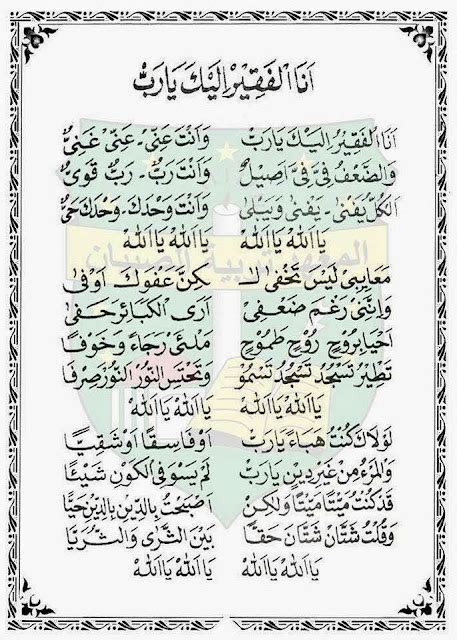 اَنَا الْفَقِيْرُ اِلَيْكَ يَارَبُّ
اَنَا الْفَقِيْرُ اِلَيْكَ يَارَبّ وَانْتَ عَنِّىْ - عَنِّىْ غَنِىٌّ
وَالضَّعْفُ فِىَّ فِىَّ اَصِيْلٌ وَاَنْتَ رَبٌّ - رَبٌّ قَوِىٌّ
اَلْكُلُّ يَفْنٰى - يَفْنٰى وَيَبْلٰى وَاَنْتَ وَحْدَكَ - وَحْدَكَ حَىٌّ
يَا اَللهُ يَا اَللهُ يَا اَللهُ يَا اَللهُ
مَعَايِبِىْ لَيْسَ تَخْفٰى لٰـ ـكِنَّ عَفْوَكَ اَوْفٰى
وَاِنَّنِىْ رَغْمَ ضَعْفِىْ اَرَى الْكَبَائِرَ حَفٰى
اَحْيَا بِرُوْحٍ رُوْحٍ طَمُوْحٍ مُلْئَى رَجَاءً وَخَوْفًا
تَطِيْرُ تَسْجُدُ تَسْجُدُ تَسْمُوْ وَتَحْتَسِى النُّوْرَ النُّوْرَ صِرْفًا
يَا اَللهُ يَا اَللهُ يَا اَللهُ يَا اَللهُ
لَوْلَاكَ كُنْتُ هَبَاءً يَارَبّ اَوْ فَاسِقًا اَوْ شَقِيًّا
وَالْمَرْءُ مِنْ غَيْرِ دِيْنٍ يَارَبّ لَمْ يَسْوَ فِى الْكَوْنِ شَيْئًا
قَدْ كُنْتُ مَيْتًا مَيْتًا وَلٰكِنْ اَصْبَحْتُ بِالدِّيْنِ بِالدِّيْنِ حَيًّا
وَقُلْتُ شَتَّانَ شَتَّانَ حَقًّا بَيْنَ الثَّرٰى وَالثُّرَيَّا
يَا اَللهُ يَا اَللهُ يَا اَللهُ يَا اَللهُ